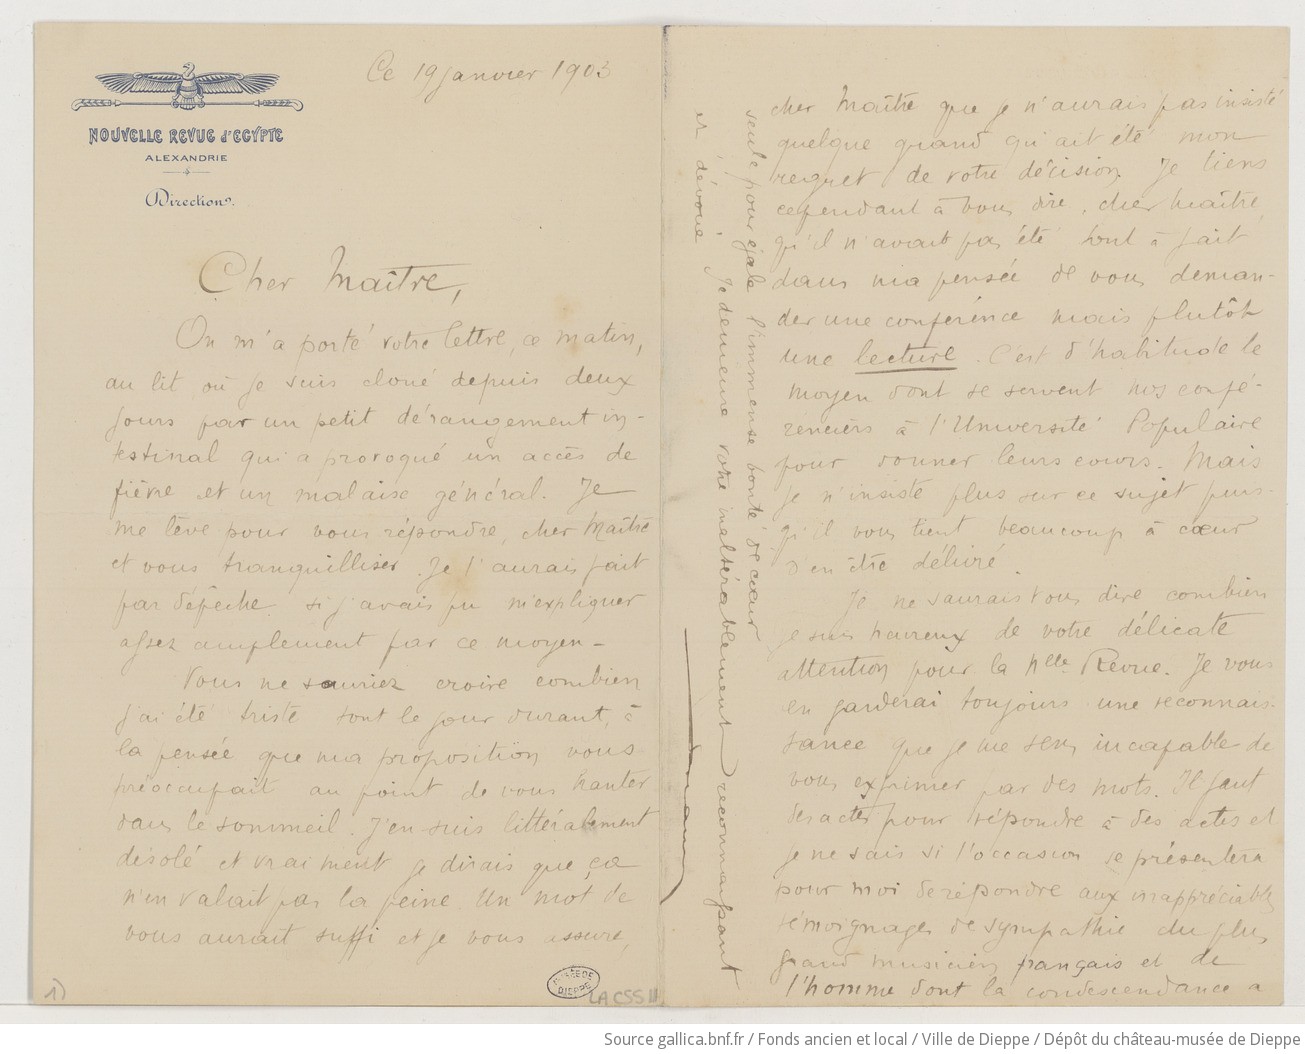 Ce 19 janvier 1903
NOUVELLE REVUE d'EGYPTE
ALEXANDRIE
Direction.
Cher Maître,
On m'a porté votre lettre, ce matin,
au lit où je suis cloué depuis deux
jours par un petit dérangement in-
testinal qui a provoqué un accès de
fièvre et un malaise général. Je
me lève pour vous répondre, cher Maître
et vous tranquilliser. Je l'aurais fait
par dépêche si j'avais pu m'expliquer
assez amplement par ce moyen -
Vous ne sauriez croire combien
j'ai été triste tout le jour durant, à
la pensée que ma proposition vous
préoccupait au point de vous hanter
dans le sommeil. J'en suis littéralement
désolé et vraiment je dirais que ça
n'en valait pas la peine. Un mot de
vous aurait suffi et je vous assure,
cher Maître que je n'aurais pas insisté
quelque grand qu'ait été mon
regret de votre décision. Je tiens
cependant à vous dire, cher Maître,
qu'il n'avait pas été tout à fait
dans ma pensée de vous deman-
der une conférence mais plutôt
une lecture. C'est d'habitude le
moyen dont se servent nos confé-
renciers à l'Université Populaire
pour donner leurs cours. Mais
je n'insiste plus sur ce sujet puis-
qu'il vous tient beaucoup à cœur
d'en être délivré.
Je ne saurais vous dire combien
je suis heureux de votre délicate
attention pour la Nlle Revue. Je vous
en garderai toujours une reconnais-
sance que je me sens incapable de
vous exprimer par des mots. Il faut
des actes pour répondre à des actes et
je ne sais si l'occasion se présentera
pour moi de répondre aux inappréciables
témoignages de sympathie du plus
grand musicien français et de
l'homme dont la condescendance a
seule pour égale l'immense bonté de cœur
Je demeure votre inaltérablement reconnaissant
et dévoué
MUSÉE DE
DIEPPE
LA CSS 11
1)
Source gallica.bnf.fr / Fonds ancien et local / Ville de Dieppe / Dépôt du château-musée de Dieppe